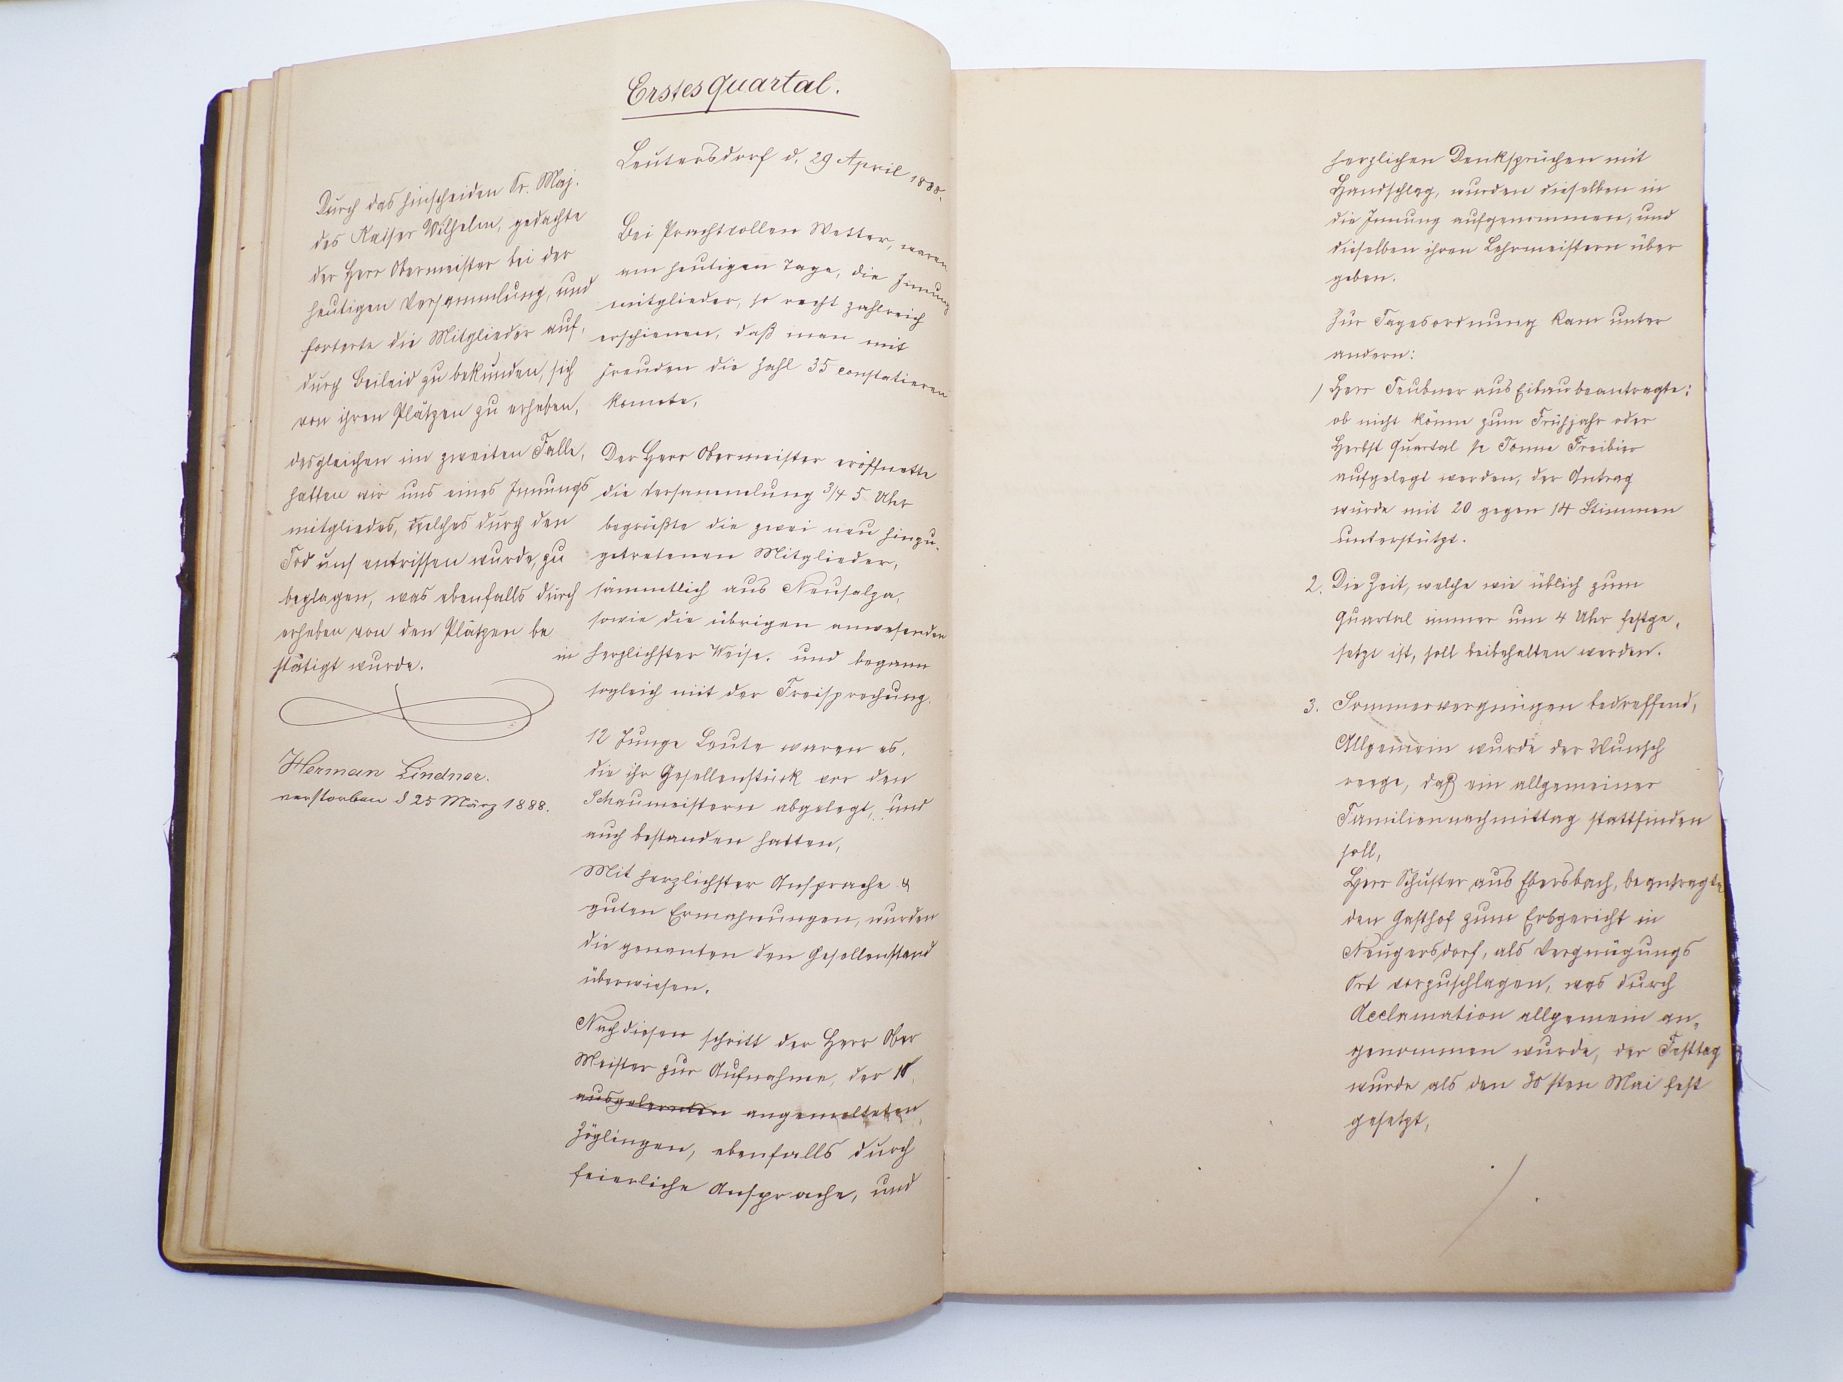 Erstes Quartal.
Leutersdorf d. 29 April 1888.
Durch das Hinscheiden Sr. Maj.
des Kaiser Wilhelm, gedachte
der Herr Obermeister bei der
heutigen Versammlung, und
forterte die Mitglieder auf,
durch Beileid zu bekunden, sich
von ihren Plätzen zu erheben,
desgleichen im zweiten Falle,
hatten wir uns eines Innungs
mitgliedes, welches durch den
Tod uns entrissen wurde, zu
beglagen, was ebenfalls durch
erheben von den Plätzen be
stätigt wurde.
Herman Lindner.
verstorben d 25 März 1888.
Bei Prachtvollen Wetter, waren
am heutigen Tage, die Innung
mitglieder, so recht zahlreich
erschienen, daß man mit
Freuden die Zahl 35 constatieren
konnte,
Der Herr Obermeister eröffnette
die Versammlung 3/4 5 Uhr
begrüßte die zwei neu hinzu-
getretenen Mitglieder,
sämmtlich aus Neusalza,
sowie die übrigen anwesenden
in herzlichster Weise. und begann
sogleich mit der Freisprechung.
12 Junge Leute waren es,
die ihr Gesellenstück vor den
Schaumeistern abgelegt, und
auch bestanden hatten,
Mit herzlichster Ansprache &
guten Ermahnungen, wurden
die genanten den Gesellenstand
überwiesen.
Nach diesen schritt der Herr Ober
Meister zur Aufnahme, der
ausgelernten angemelteten,
Zöglingen, ebenfalls durch
feierliche Ansprache, und
herzlichen Denksprüchen mit
Handschlag, wurden dieselben in
die Innung aufgenommen, und
dieselben ihren Lehrmeistern über
geben.
Zur Tagesordnung kam unter
andern:
1) Herr Teubner aus Eibau beantragte:
ob nicht könne zum Frühjahr oder
Herbst Quartal 1/2 Tonne Freibier
aufgelegt werden, der Antrag
wurde mit 20 gegen 14 Stimmen
unterstützt.
2. Die Zeit, welche wie üblich zum
Quartal immer um 4 Uhr festge,
setzt ist, soll beibehalten werden.
3. Sommervergnügen bedreffend,
Allgemein wurde der Wunsch
rege, daß ein allgemeiner
Familiennachmittag stattfinden
soll,
Herr Schuster, aus Ebersbach, beantragte
den Gasthof zum Erbgericht in
Neugersdorf, als Vergnügungs
Ort vorzuschlagen, was durch
Acclamation allgemein an,
genommen wurde, der Festtag
wurde als den 30sten Mai fest
gesetzt,